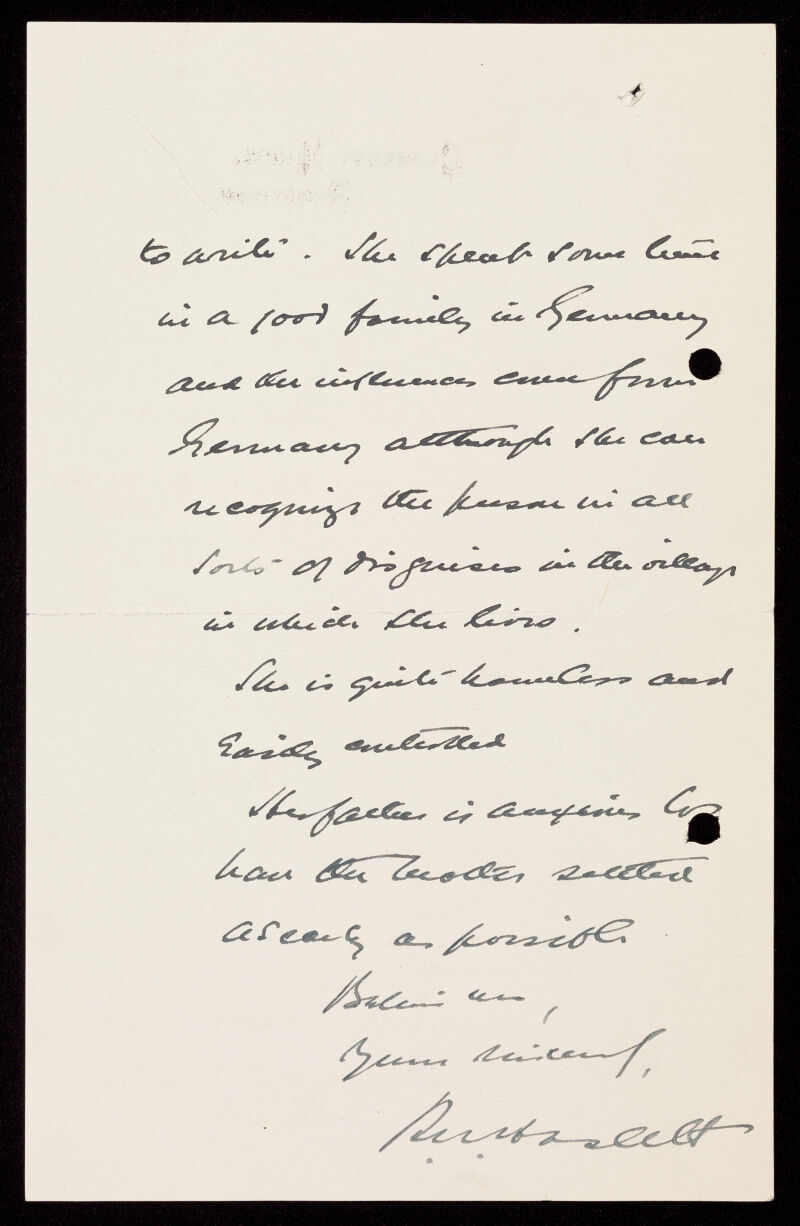 to write. She spent some time
in a good family in Germany
and the influences come from
Germany although she can
recognize the person in all
sorts of disguises in the village
in which she lives.
She is quite harmless and
Easily controlled
Her father is anxious to
have the matter settled
as early as possible
Believe me,
Yours sincerely,
Haslett